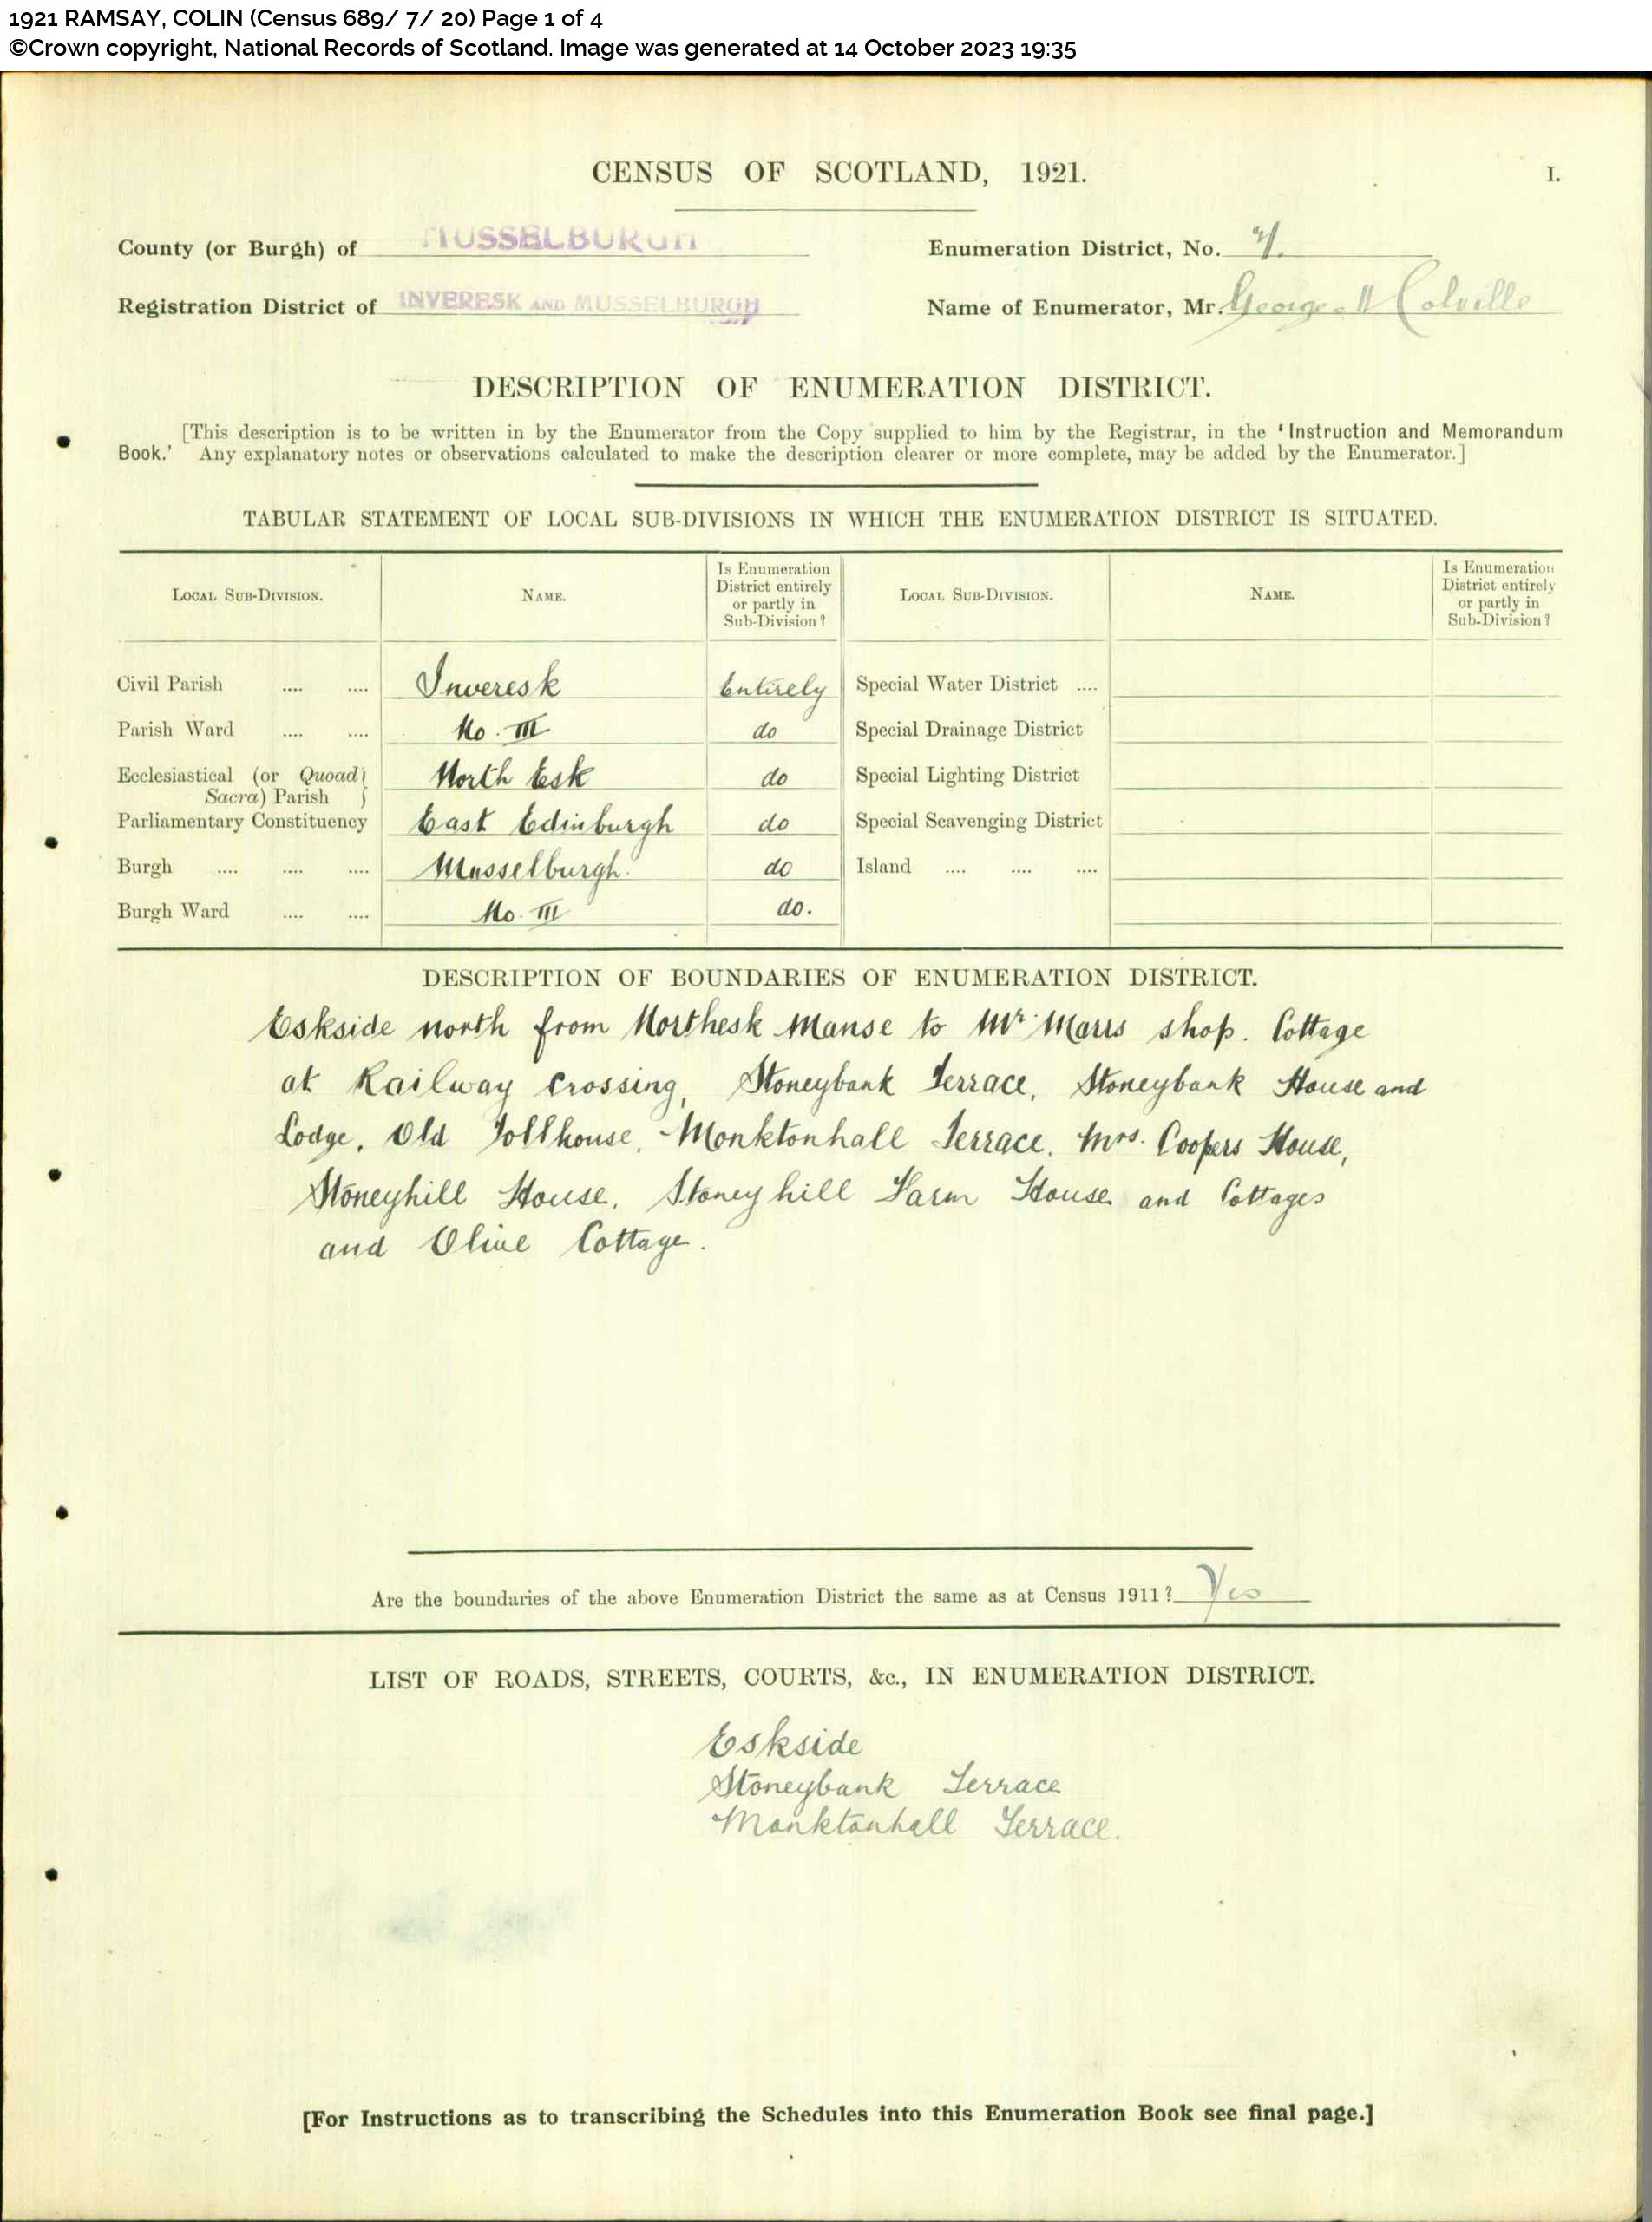 1921 RAMSAY, COLIN (Census 689/ 7/ 20) Page 1 of 4
©Crown copyright, National Records of Scotland. Image was generated at 14 October 2023 19:35
CENSUS OF SCOTLAND, 1921.
I.
County (or Burgh) of MUSSELBURGH
Enumeration District, No. 7.
Registration District of INVERESK AND MUSSELBURGH
Name of Enumerator, Mr. George Colville
DESCRIPTION OF ENUMERATION DISTRICT.
[This description is to be written in by the Enumerator from the Copy supplied to him by the Registrar, in the 'Instruction and Memorandum
Book.' Any explanatory notes or observations calculated to make the description clearer or more complete, may be added by the Enumerator.]
TABULAR STATEMENT OF LOCAL SUB-DIVISIONS IN WHICH THE ENUMERATION DISTRICT IS SITUATED.
LOCAL SUB-DIVISION. NAME. Is Enumeration District entirely or partly in Sub-Division? LOCAL SUB-DIVISION. NAME. Is Enumeration District entirely or partly in Sub-Division?
Civil Parish .... .... Inveresk Entirely Special Water District ....
Parish Ward .... .... No. III do Special Drainage District
Ecclesiastical (or Quoad Sacra) Parish North Esk do Special Lighting District
Parliamentary Constituency East Edinburgh do Special Scavenging District
Burgh .... .... .... Musselburgh. do Island .... .... ....
Burgh Ward .... .... No. III do.
DESCRIPTION OF BOUNDARIES OF ENUMERATION DISTRICT.
Eskside north from Northesk Manse to Mr. Marrs shop. Cottage
at Railway Crossing, Stoneybank Terrace, Stoneybank House and
Lodge, Old Tollhouse, Monktonhall Terrace, Mrs. Coopers House,
Stoneyhill House, Stoneyhill Farm House and Cottages
and Olive Cottage.
Are the boundaries of the above Enumeration District the same as at Census 1911? Yes
LIST OF ROADS, STREETS, COURTS, &c., IN ENUMERATION DISTRICT.
Eskside
Stoneybank Terrace
Monktonhall Terrace.
[For Instructions as to transcribing the Schedules into this Enumeration Book see final page.]